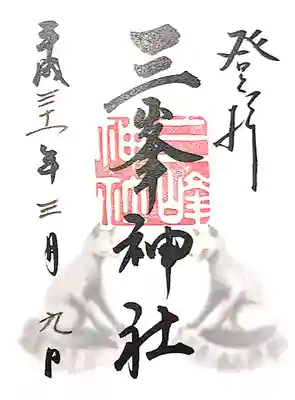 登拝
三峯神社
三峰神社
平成三十一年三月九日